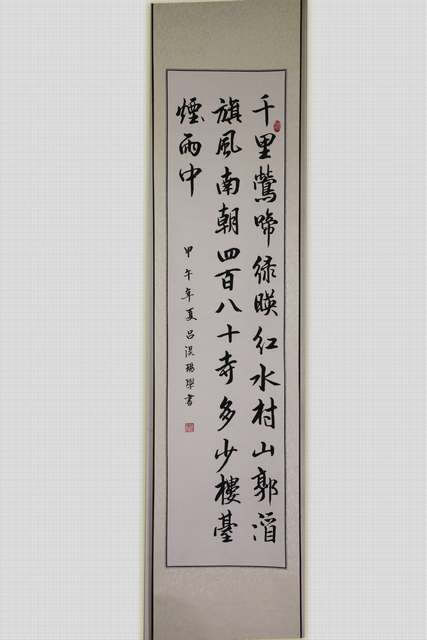 千里鶯啼绿暎红水村山郭酒
旗風南朝四百八十寺多少樓臺
煙雨中
甲午年夏吕學書